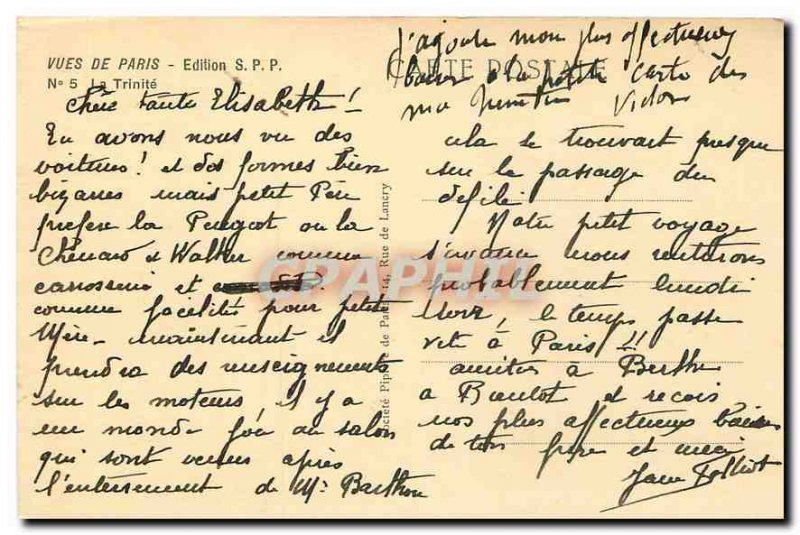 VUES DE PARIS - Edition S. P. P.
No 5 La Trinité
CARTE POSTALE
Chère tante Elisabeth!
En avons nous vu des
voitures! et des formes bien
bizarres mais petit Père
préfère la Peugeot ou la
Chenard & Walker comme
carrosserie et
comme facilité pour petite
Mère - maintenant il
prendra des renseignements
sur les moteurs, il y a
un monde fou au salon
qui sont venus après
l'enterrement de Mr Barthou
cela se trouvait presque
sur le passage du
défilé
Notre petit voyage
s'avance nous rentrerons
probablement lundi
soir, le temps passe
vite à Paris!!
amitiés à Berthe
a Boulot et reçois
nos plus affectueux baisers
de ton frère et moi
Jane
J'ajoute mon plus affectueux
baiser à la petite carte de
ma Victor
Société Pipard de Paris, 14, Rue de Lancry
CPAPHIL